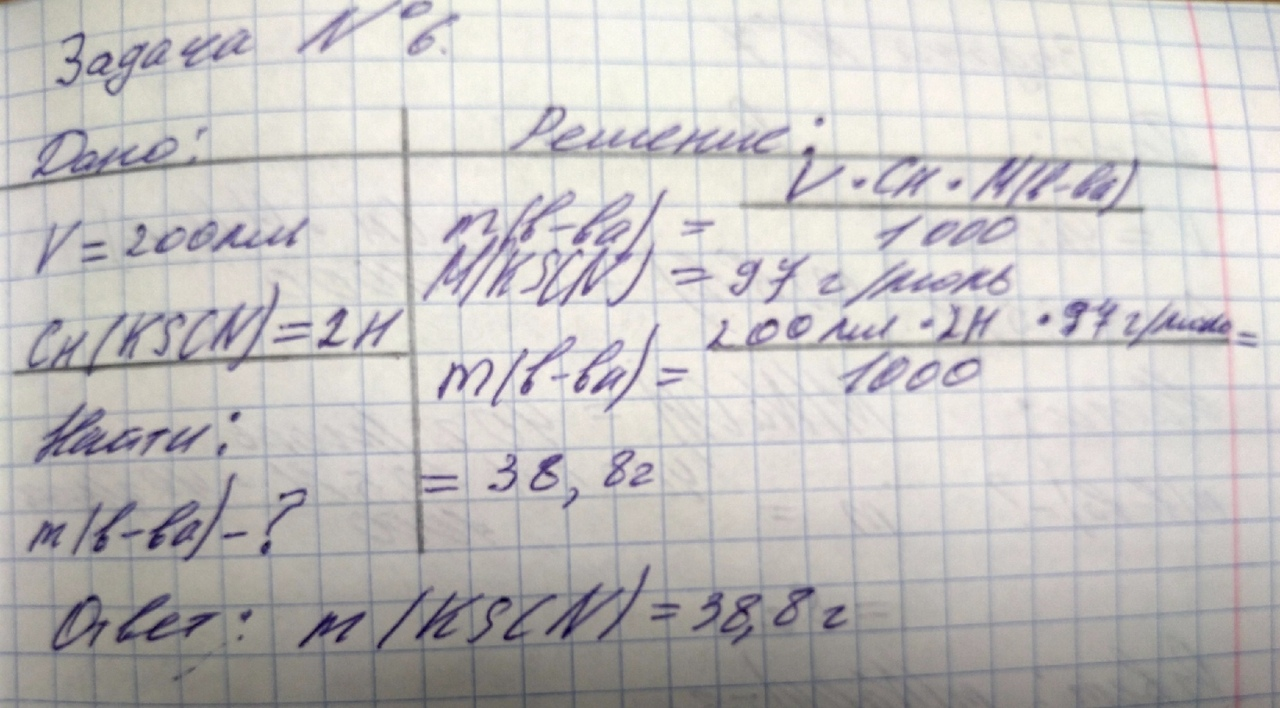 Задача № 6.
Дано:
V = 200 мл
Сн(KSCN) = 2Н
Найти:
m(в-ва) - ?
Решение:
m(в-ва) = V · Сн · M(в-ва) / 1000
M(KSCN) = 97 г/моль
m(в-ва) = 200 мл · 2Н · 97 г/моль / 1000 =
= 38,8г
Ответ: m(KSCN) = 38,8 г